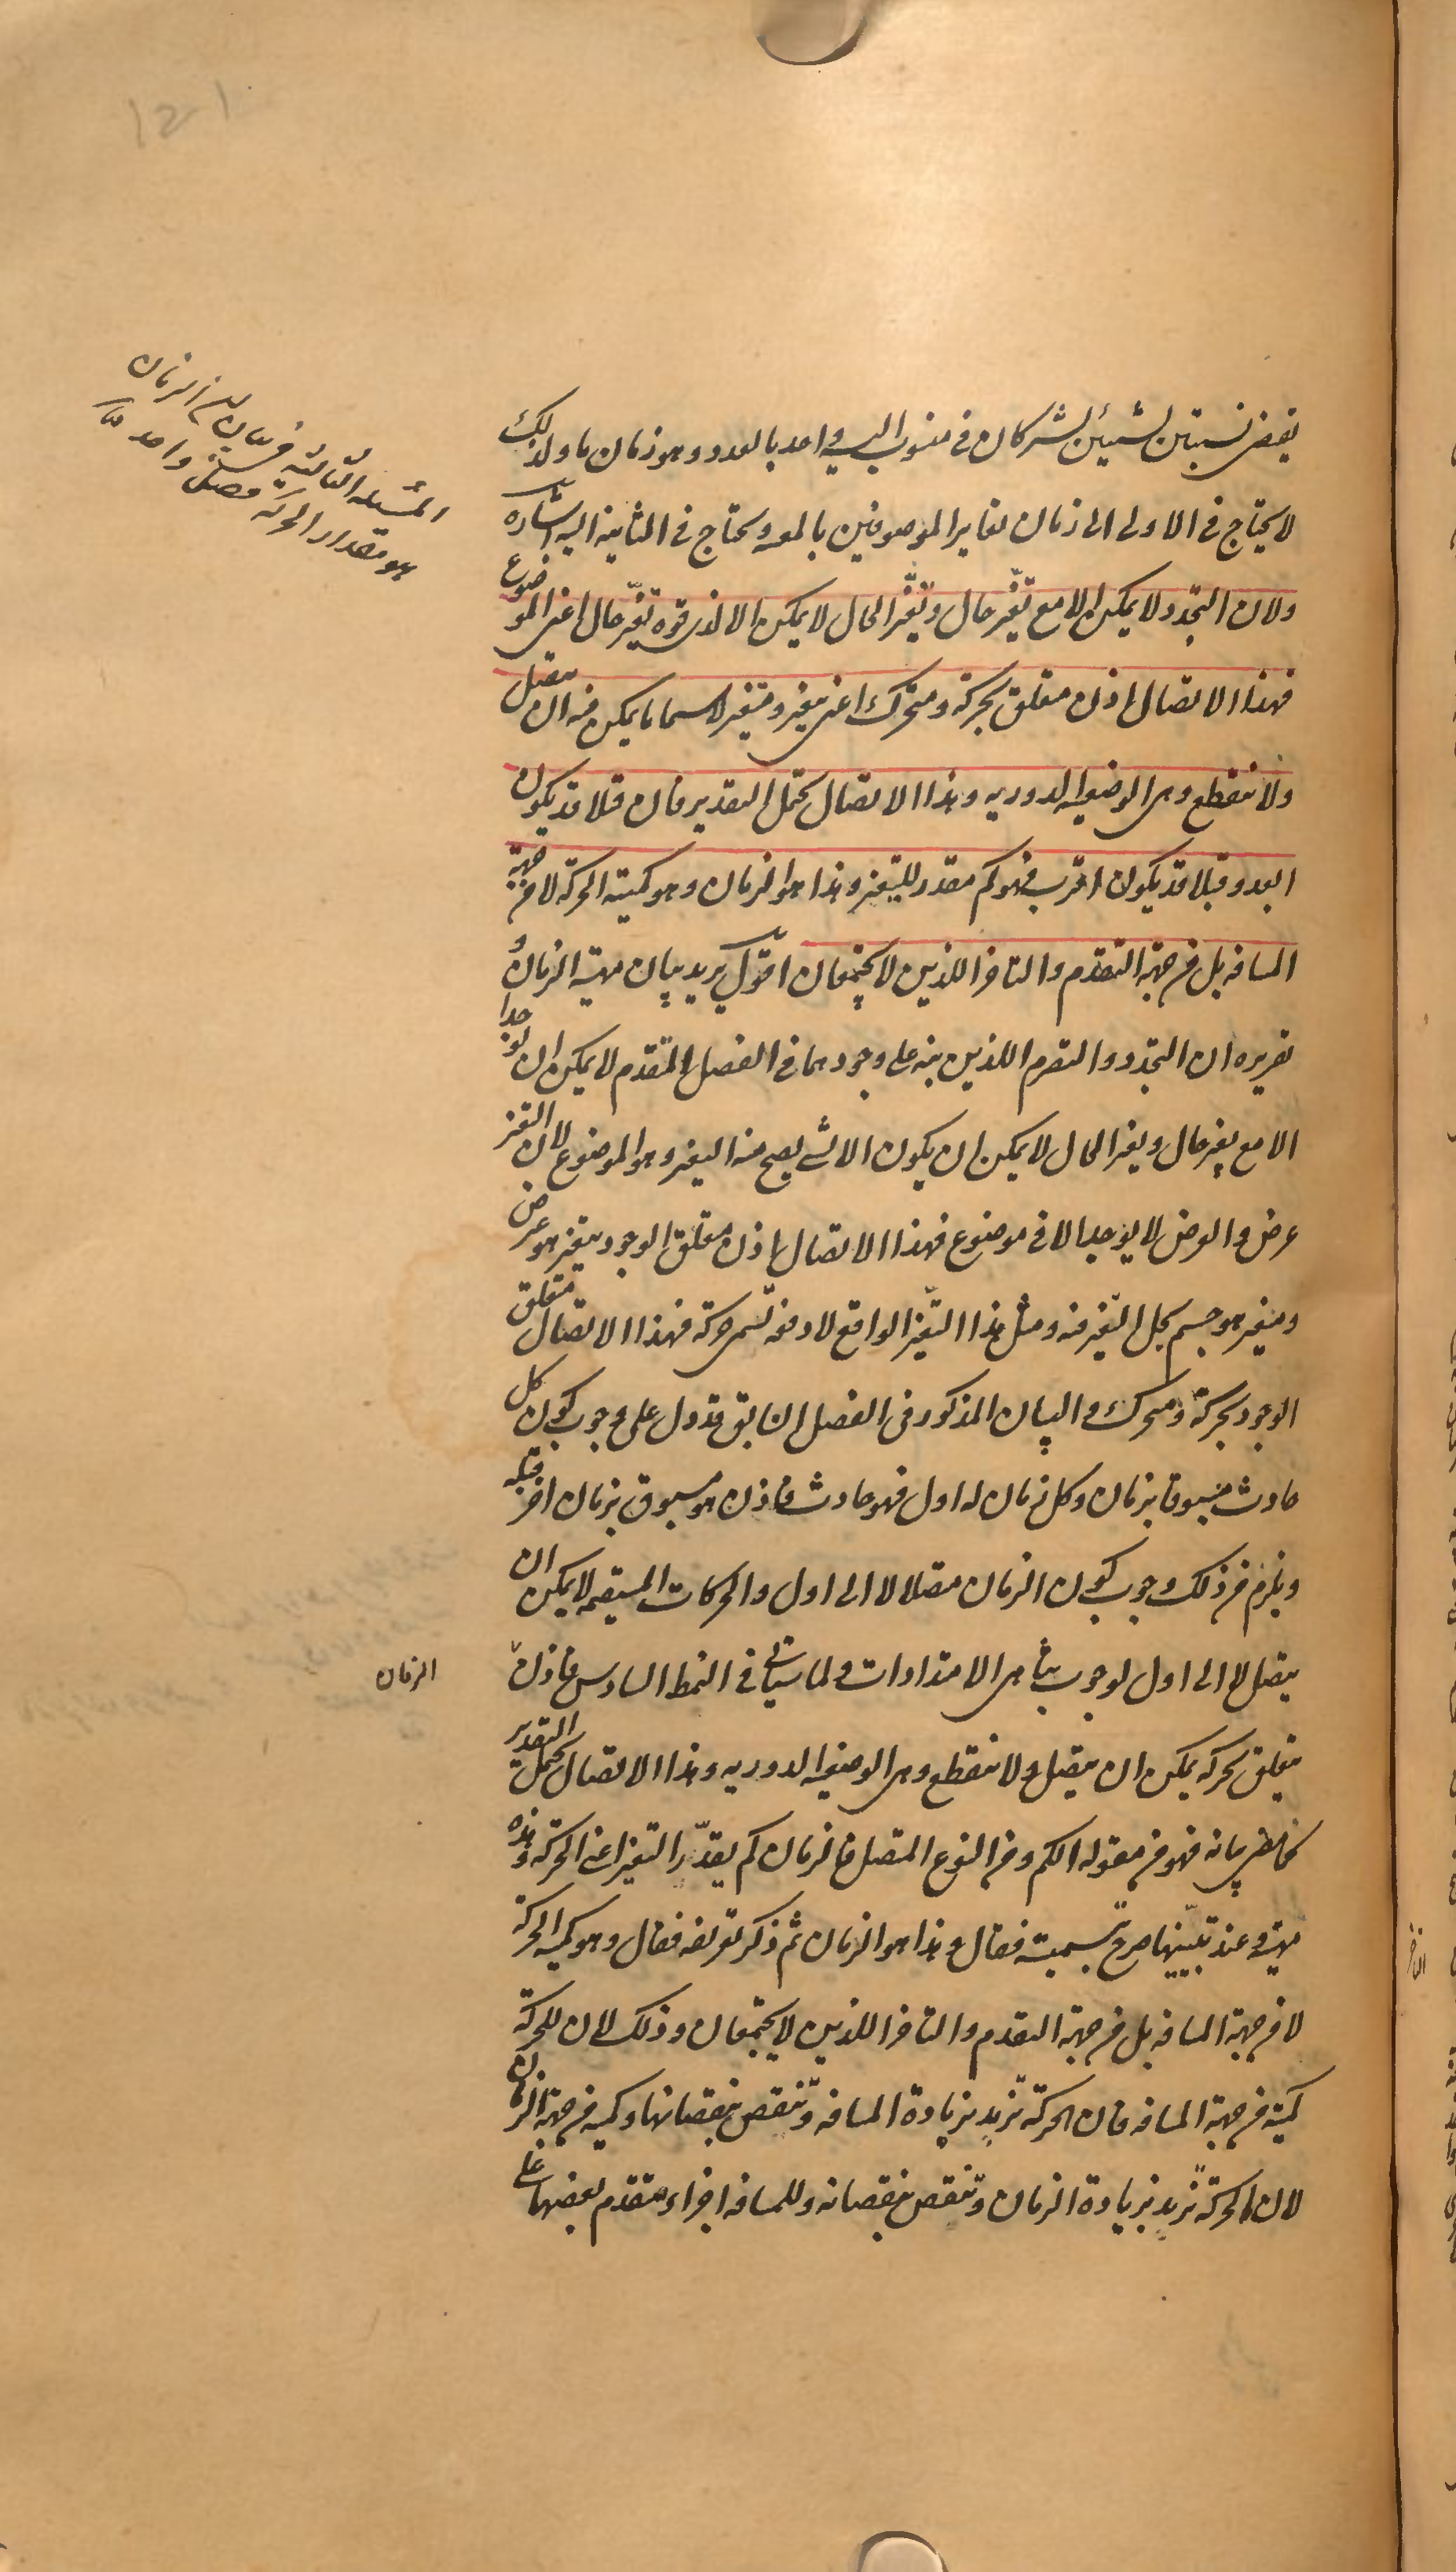 ١٥١
المسئلة الثالثة في بيان ان الزمان
هو مقدار الحركة متصل واحد
يقتضى نسبتين لشيئين يشتركان فى منسوب اليه واحد بالعدد وهو زمان ما ولذلك
لا يحتاج فى الاولى الى زمان يغاير الموصوفين بالمعية ويحتاج فى الثانية اليه اشارة
ولان التجدد لا يمكن الا مع تغيّر حال وتغيّر الحال لا يمكن الا لذى قوة تغيّر حال اعنى الموضوع
فهذا الاتصال اذن متعلق بحركة ومتحرك اعنى بتغير ومتغير لا سيما ما يمكن فيه ان يتصل
ولا ينقطع وهى الوضعية الدورية وهذا الاتصال يحتمل التقدير فان قبلا قد يكون
ابعد وقبلا قد يكون اقرب فهو كم مقدر للتغير وهذا هو الزمان وهو كمية الحركة لا من جهة
المسافة بل من جهة التقدم والتاخر اللذين لا يجتمعان اقول يريد بيان مهية الزمان و
تقريره ان التجدد والتصرم اللذين نبه على وجودهما فى الفصل المتقدم لا يمكن ان يوجدا
الا مع تغير حال وتغير الحال لا يمكن ان يكون الا لشئ يصح منه التغير وهو الموضوع لان التغير
عرض والعرض لا يوجد الا فى موضوع فهذا الاتصال اذن متعلق الوجود بتغير هو عرض
ومتغير هو جسم يحل التغير فيه ومثل هذا التغير الواقع لا دفعة تسمى حركة فهذا الاتصال متعلق
الوجود بحركة ومتحرك والبيان المذكور فى الفصل السابق قد دل على وجوب كون كل
حادث مسبوقا بزمان وكل زمان له اول فهو حادث فاذن هو مسبوق بزمان اخر قبله
ويلزم من ذلك وجوب كون الزمان متصلا لا الى اول والحركات المستقيمة لا يمكن ان
يتصل لا الى اول لوجوب تناهى الامتدادات ولما سياتى فى النمط السادس فاذن
الزمان
يتعلق بحركة يمكن ان يتصل ولا ينقطع وهى الوضعية الدورية وهذا الاتصال يحتمل التقدير
كما مضى بيانه فهو من مقولة الكم ومن النوع المتصل فالزمان كم يقدّر التغير اعنى الحركة وهذه
مهيته وعند تبيينها صرح بتسميته فقال وهذا هو الزمان ثم ذكر تعريفه فقال وهو كمية الحركة
لا من جهة المسافة بل من جهة التقدم والتاخر اللذين لا يجتمعان وذلك لان للحركة
كمية من جهة المسافة فان الحركة تزيد بزيادة المسافة وتنقص بنقصانها وكمية من جهة الزمان
لان الحركة تزيد بزيادة الزمان وتنقص بنقصانه وللمسافة اجزاء يتقدم بعضها على